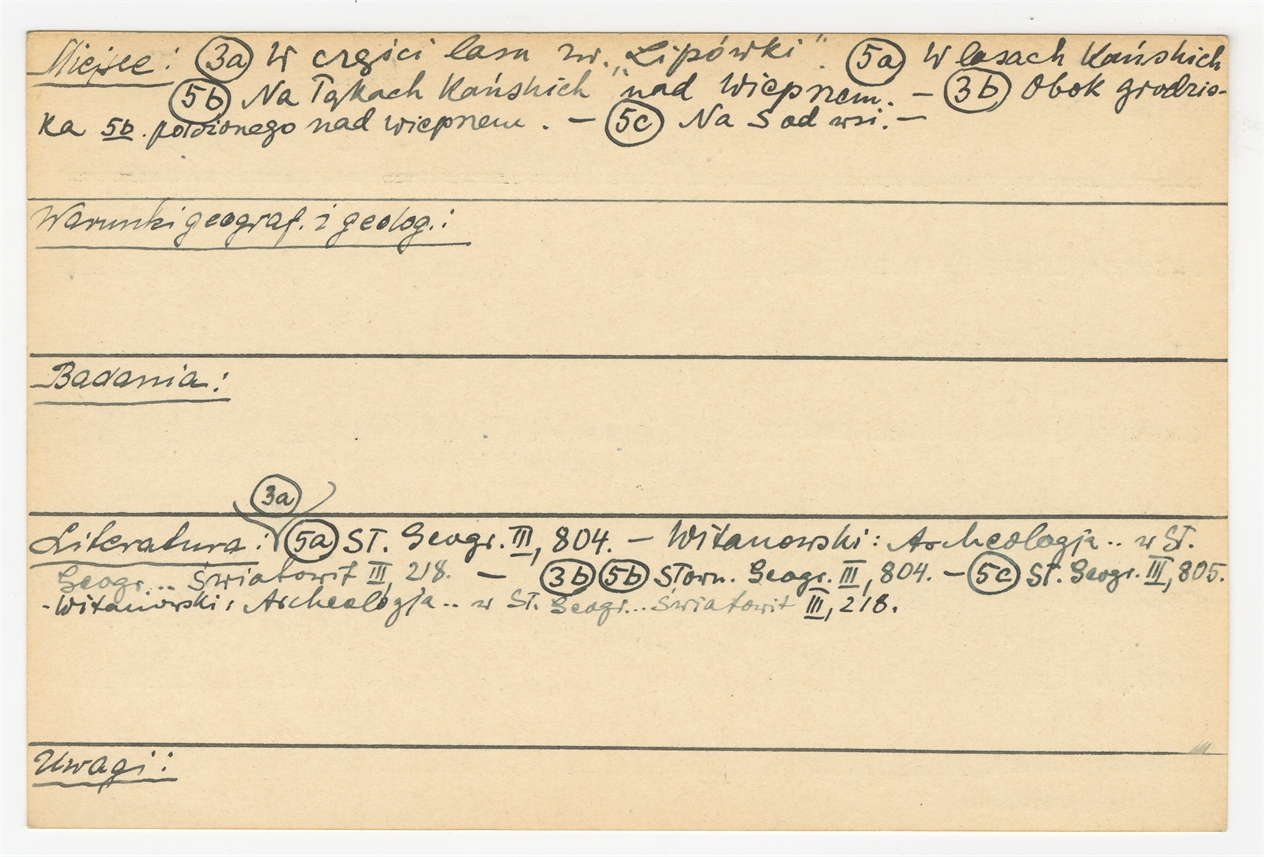 Miejsce: 3a W części lasu zw. „Lipówki". 5a W lasach Kańskich
5b Na Łąkach Kańskich" nad Wieprzem. – 3b Obok grodzis-
ka 5b. położonego nad wieprzem. – 5c Na S od wsi. –
Warunki geograf. i geolog.:
Badania:
3a
Literatura: 5a Sł. Geogr. III, 804. – Witanowski: Archeologja.. w Sł.
Geogr... Światowit III, 218. – 3b 5b Słown. Geogr. III, 804. – 5c Sł. Geogr. III, 805.
-Witanowski: Archeologja.. w Sł. Geogr... Światowit III, 218.
Uwagi: